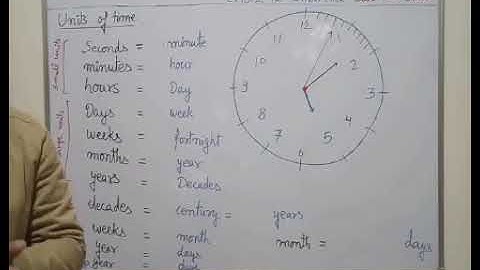 Units of time
Small units
Seconds = minute
minutes = hour
hours = Day
Days = week
weeks = fortnight
months = year
years = Decades
decades = century = years
weeks = month month = days
year = days
year =
12
1
2
3
4
5
6
7
8
9
10
11